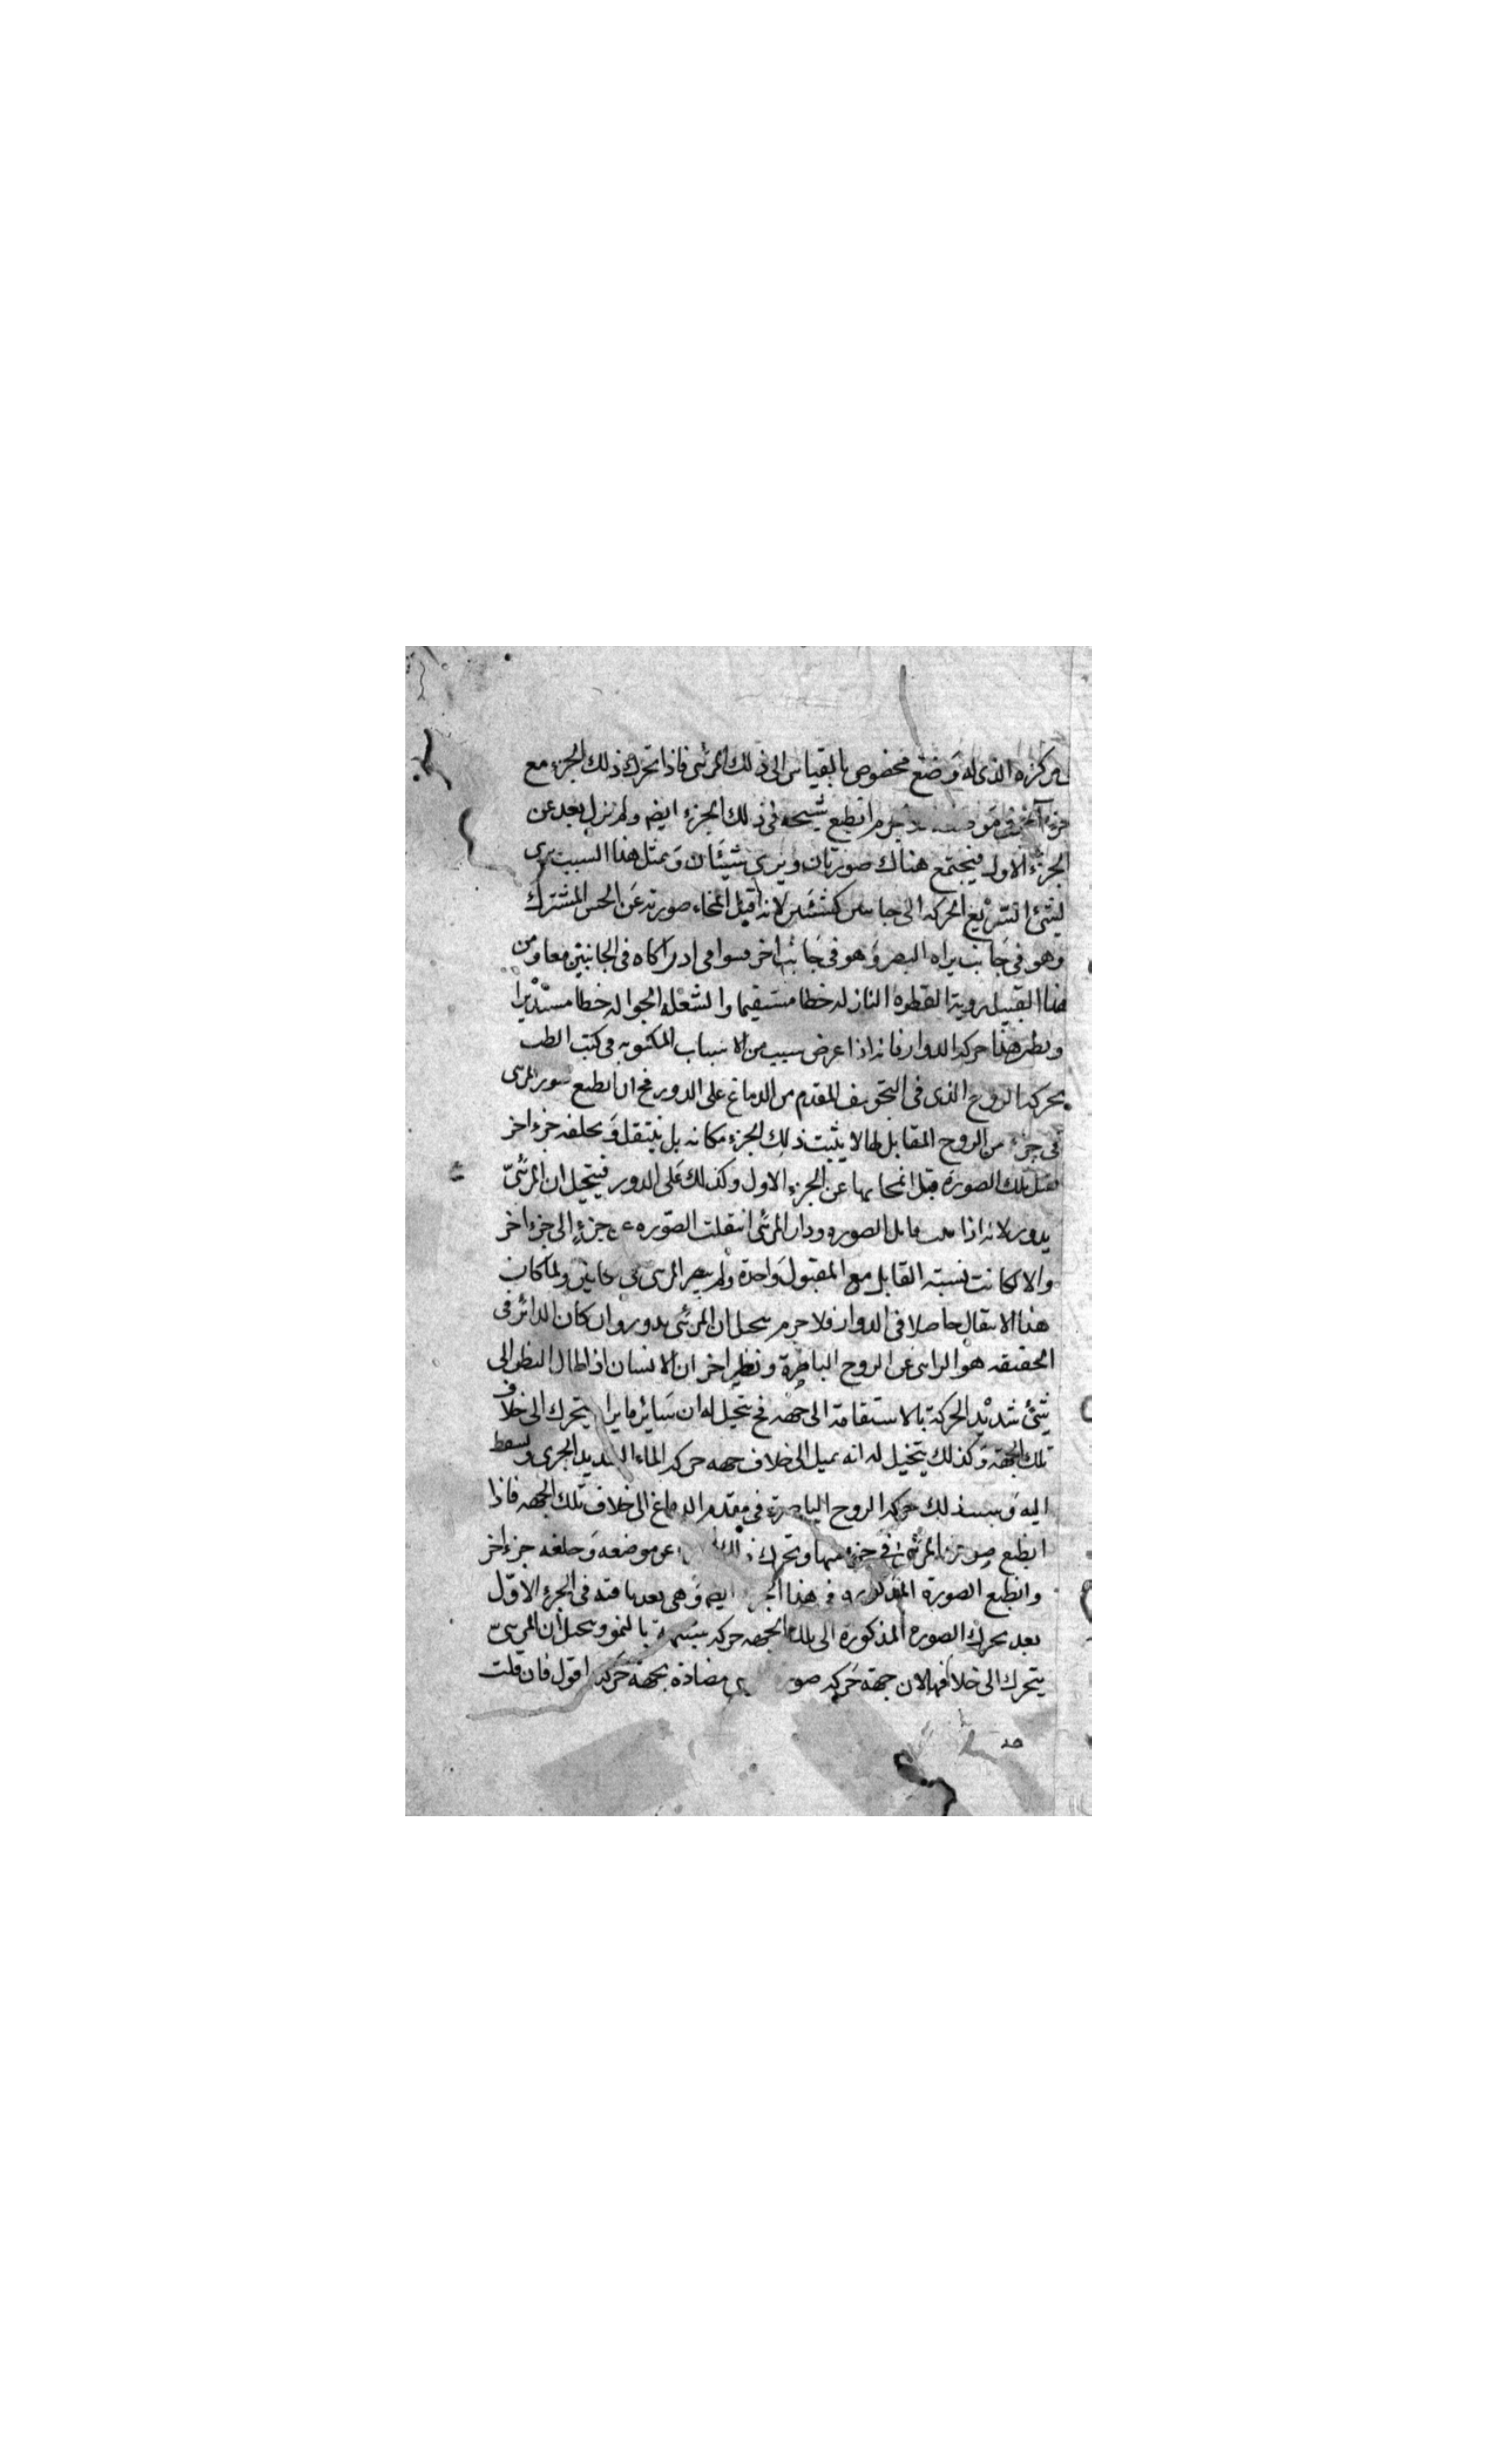 مركزه الذى له وضع مخصوص بالقياس الى ذلك المرئى فاذا تحرك ذلك الجزء مع
جزء آخر فى موضعه لا جرم انطبع شبحه فى ذلك الجزء ايضم ولم نزل بعد عن
الجزء الاول فيجتمع هناك صورتان ويرى شيئان وبمثل هذا السبب يرى
الشئ السريع الحركه الى جانبين كشئين لانه قبل انمحاء صورته عن الحس المشترك
وهو فى جانب يراه البصر وهو فى جانب اخر فتوافى ادراكاه فى الجانبين معا ومن
هذا القبيل روية القطره النازله خطا مستقيما والشعله الجواله خطا مستديرا
ونظير هذا حركه الدوار فانه اذا عرض سبب من الاسباب المكتوبه فى كتب الطب
يحرك الروح الذى فى التجويف المقدم من الدماغ على الدور فح ان انطبع صور المرئى
فى جزء من الروح المقابل لها لا يثبت ذلك الجزء مكانه بل ينتقل ويخلفه جزء اخر
تقبل تلك الصورة قبل انمحايها عن الجزء الاول وكذلك على الدور فيتخيل ان المرئىّ
يدور لانه اذا قابل الصوره ودار المرئى انتقلت الصوره عن جزء الى جزء اخر
والا لكانت نسبته القابل مع المقبول واحدة ولم يبصر المرئى فى جانبين ولما كان
هذا الانتقال حاصلا فى الدوار فلا جرم يتخيل ان المرئى يدور وان كان الدائر فى
الحقيقه هو الرائى عن الروح الباصرة ونظير اخر ان الانسان اذا طال النظر الى
شئ شديد الحركة بالاستقامة الى جهه فح يتخيل له ان سائر ما يراه يتحرك الى خلاف
تلك الجهة وكذلك يتخيل له انه يميل الى خلاف جهه حركه الماء الشديد الجرى ويسقط
اليه وسبب ذلك حركه الروح الباصرة فى مقدم الدماغ الى خلاف تلك الجهه فاذا
انطبع صورة المرئى فى جزء منها وتحرك ذلك عن موضعه وخلفه جزء اخر
وانطبع الصورة المذكوره فى هذا الجزء ايضم وهى بعد باقيه فى الجزء الاوّل
بعد تحرك الصوره المذكورة الى تلك الجهه حركه شبيهة بالنمو ويتخيل ان المرئىّ
يتحرك الى خلافها لان جهة حركه مضادة بجهة حركه اقول فان قلت